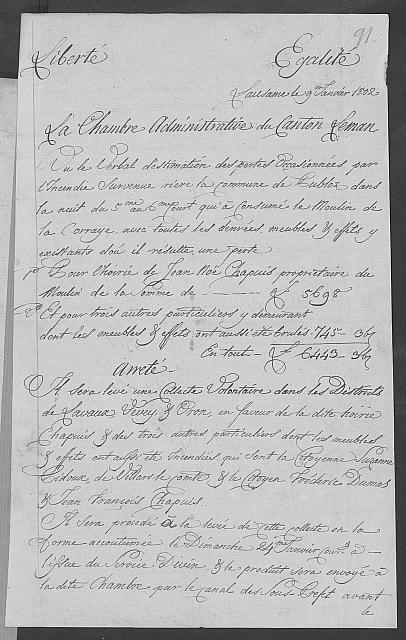 91.
Liberté Egalité
Lausanne le 9me Janvier 1802
La Chambre Administrative du Canton Leman
Vu le Verbal destimation des pertes Occasionnées par
l'Incendie Survenue rière la commune de Publox dans
la nuit du 5me au 6me Court qui à Consumé le Moulin de
la Corraye avec toutes les denrées, meubles & effets y
existants d'où il résulte une perte
1o Pour l'hoirie de Jean Noé Chapuis propriétaire du
Moulin de la Somme de — 5698
2o Et pour trois autres particuliers y demeurant
dont les meubles & effets ont aussi été brulés 745 - 3
En tout — 6443 - 3
Arreté -
Il sera levé une Collecte Volontaire dans les Districts
de Lavaux Vevey & Oron, en faveur de la dite hoirie
Chapuis & des trois autres particuliers dont les meubles
& effets ont aussi été Incendiés qui sont la Citoyenne Suzanne
de Villars le comte & le Citoyen Fréderic Dumas
& Jean François Chapuis.
Il Sera procédé à la levée de cette collecte en la
forme accoutumée le Dimanche 24me Janvier à
l'issue du Service Divin & le produit sera envoyé à
la dite Chambre par le canal des Sous Prefts avant
le